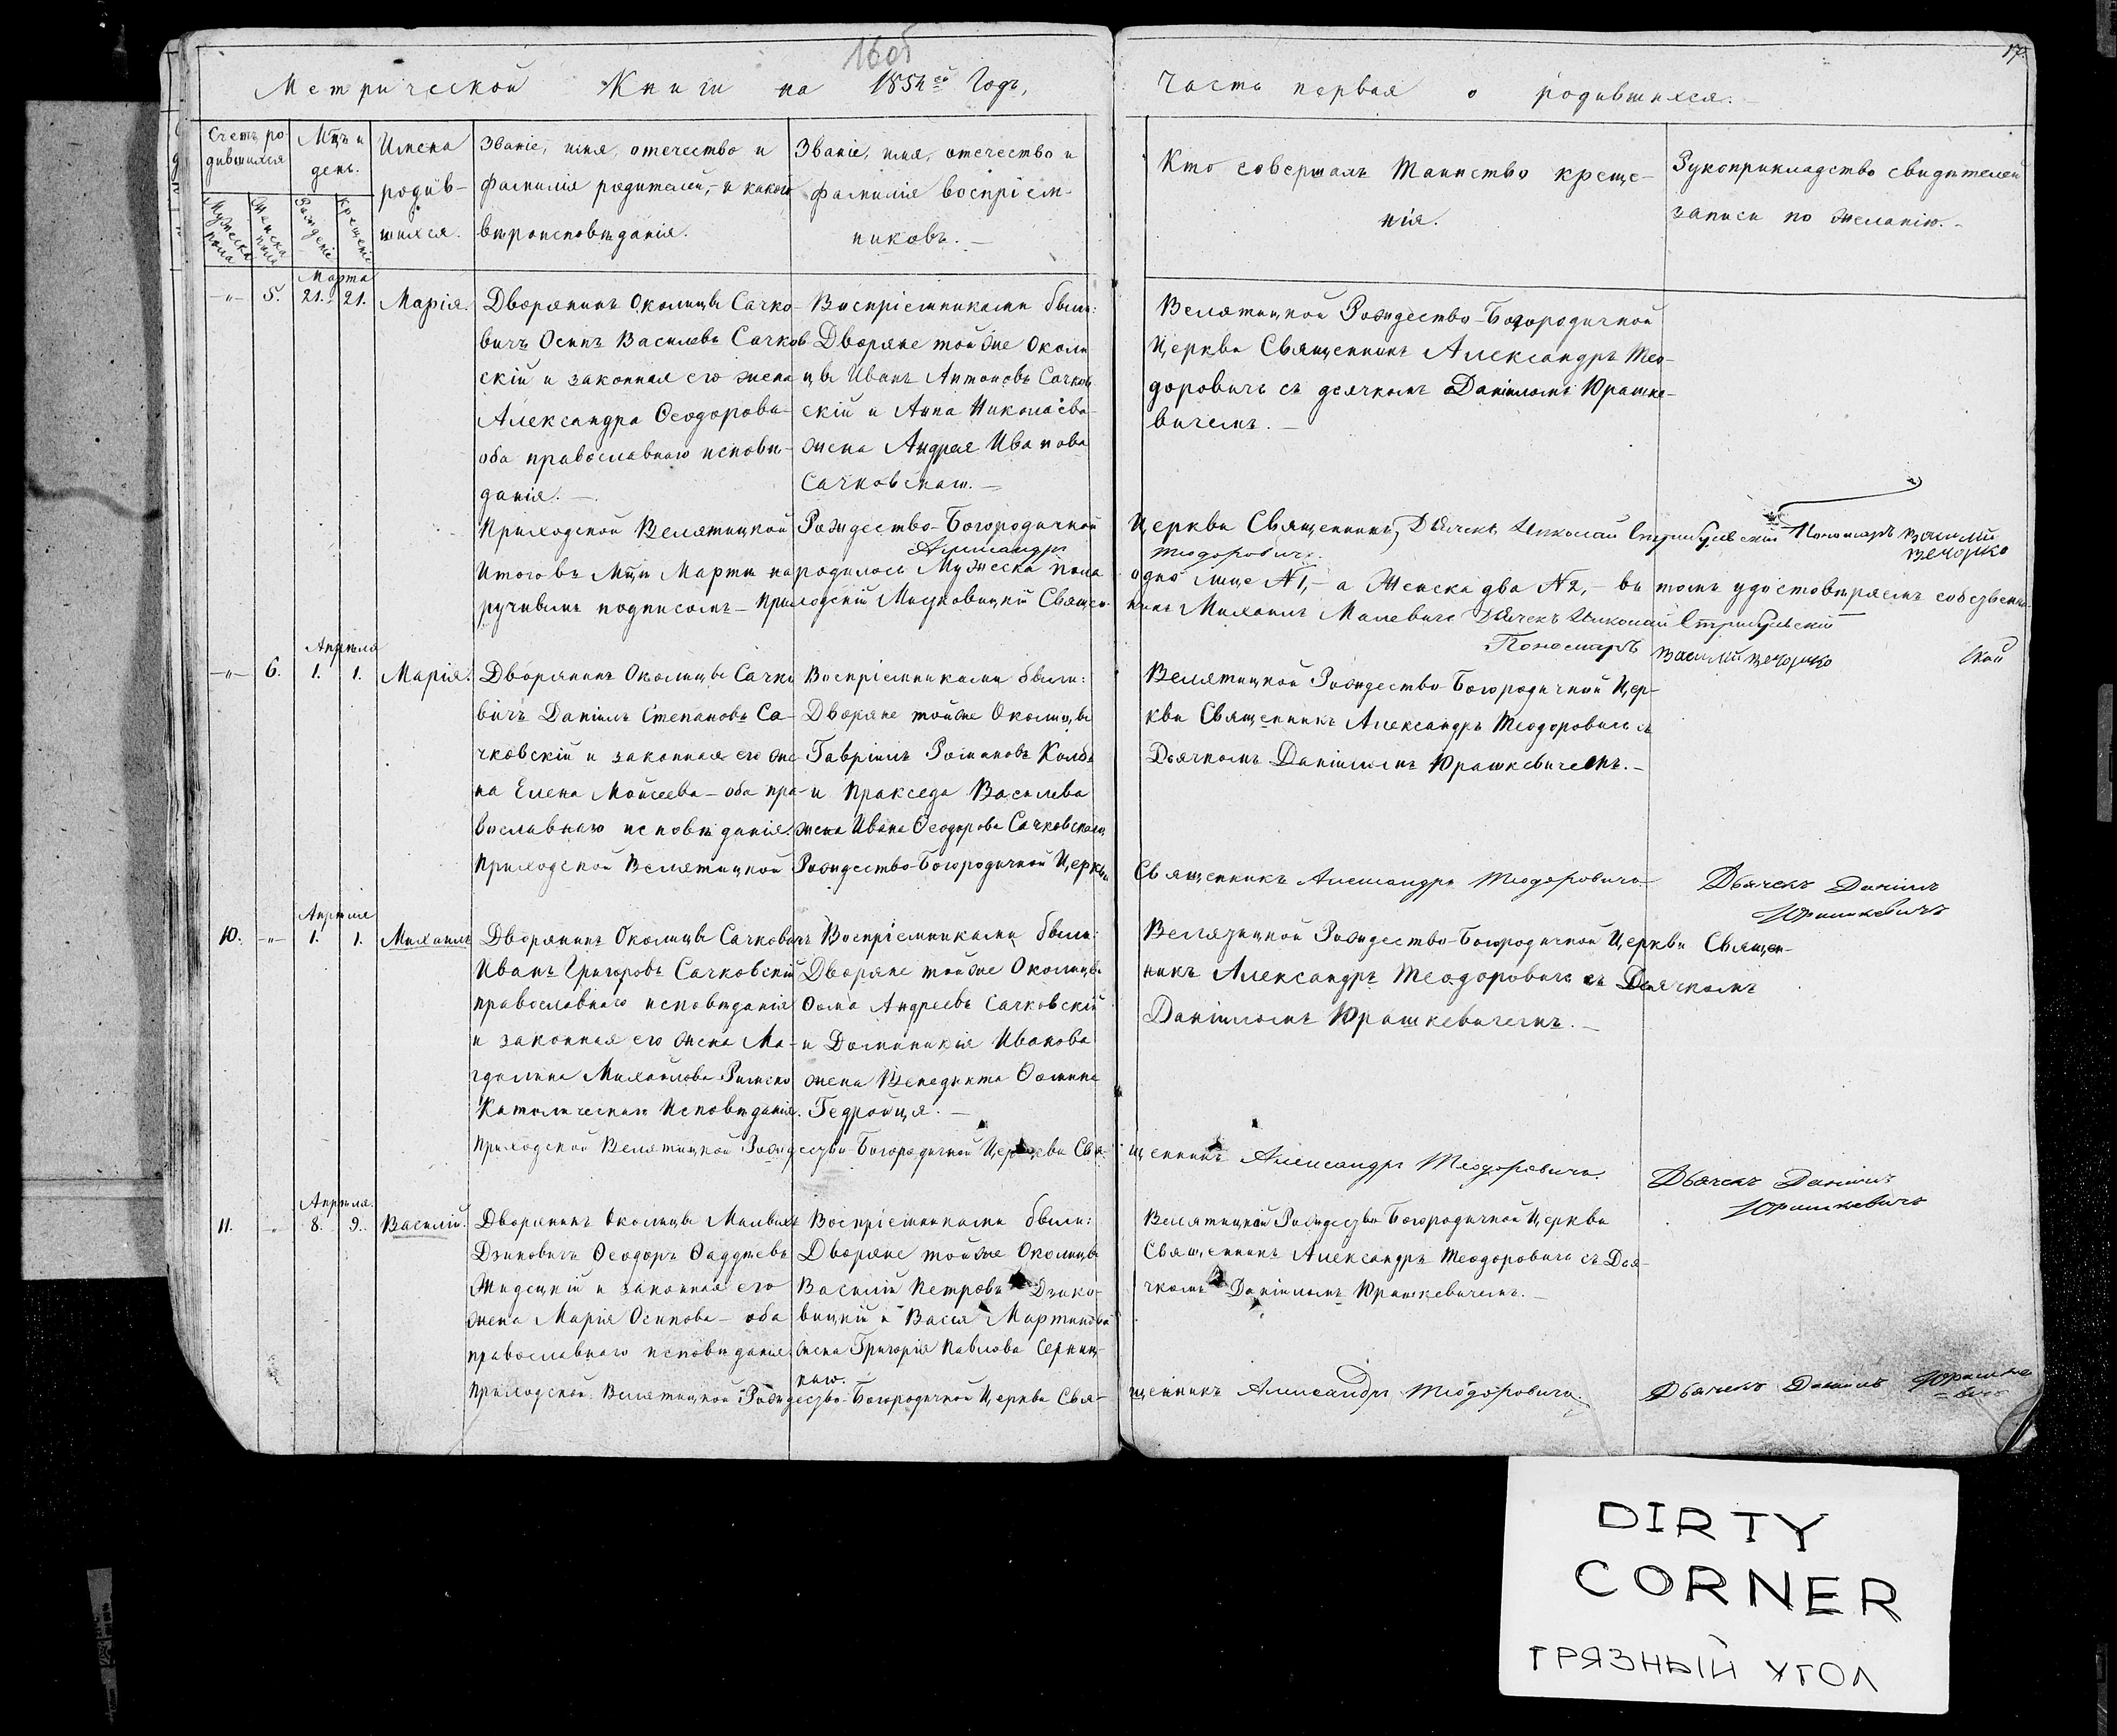 16об
17.
Метрической Книги на 1854й Годъ,
Часть первая о родившихся.
Счетъ ро-
дившихся
Мужеска пола
Женска пола
Мцъ и
день.
Рожденіе
Крещеніе
Имена
родив-
шихся.
Званіе, имя, отечество и
фамилія родителей, и какого
вѣроисповѣданія.
Званіе, имя, отечество и
фамилія воспріем-
никовъ.
Кто совершалъ Таинство креще-
нія.
Рукоприкладство свидѣтелей
записи по желанію.
Марта
-"- 5. 21. 21. Марія.
Дворянинъ Околицы Сачко-
вичъ Осипъ Васильевъ Сачков
скій и законная его жена
Александра Ѳеодорова
оба православнаго исповѣ-
данія.
Воспріемниками были:
Дворяне той же Околи
цы Иванъ Антоновъ Сачков
скій и Анна Николаева
жена Андрея Иванова
Сачковскаго.
Велятицкой Рождество-Богородичной
Церкви Священникъ Александръ Тео-
доровичъ съ дьячкомъ Даніиломъ Юрашке-
вичемъ.
Приходской Велятицкой Рождество-Богородичной Церкви Священникъ Александръ Теодоровичъ. Дьячекъ Николай Пономаръ Василий Вечорко
Итого въ Мцѣ Мартѣ народилось Мужеска пола одно лице №1, а Женска два №2, въ томъ удостовѣряемъ собственно-
ручнымъ подписомъ Приходскій Священ-никъ Михаилъ Малевичъ Дьячекъ Николай
Пономарь Василий Вечорко
Апрѣля
-"- 6. 1. 1. Марія.
Дворянинъ Околицы Сачко
вичъ Даніилъ Степановъ Са-
чковскій и законная его же-
на Елена Моисеева оба пра-
вославнаго исповѣданія.
Воспріемниками были:
Дворяне той же Околицы
Гавріилъ Романовъ Колб
и Праксед­а Васильева
жена Ивана Ѳеодорова Сачковскаго
Велятицкой Рождество-Богородичной Цер-
кви Священникъ Александръ Теодоровичъ съ
Дьячкомъ Даніиломъ Юрашкевичемъ.
Приходской Велятицкой Рождество-Богородичной Церкви Священникъ Александръ Теодоровичъ Дьячекъ Даніилъ
Юрашкевичъ
Апрѣля
10. -"- 1. 1. Михаилъ
Дворянинъ Околицы Сачковичъ
Иванъ Григоровъ Сачковскій
православнаго исповѣданія
и законная его жена Ма-
гдалина Михаилова Римско
Католическаго Исповѣданія.
Воспріемниками были:
Дворяне той же Околицы
Ѳома Андреевъ Сачковскій
и Доминикія Иванова
жена Венедикта Ѳомина
Гедройця.
Велятицкой Рождество-Богородичной Церкви Священ-
никъ Александръ Теодоровичъ съ Дьячкомъ
Даніиломъ Юрашкевичемъ.
Приходской Велятицкой Рождество Богородичной Церкви Свя-щенникъ Александръ Теодоровичъ. Дьячекъ Даніилъ
Юрашкевичъ
Апрѣля
11. -"- 8. 9. Василій.
Дворянинъ Околицы Малыхъ
Дзиковичъ Ѳеодоръ Ѳаддеевъ
Жидецкій и законная его
жена Марія Осипова оба
православнаго исповѣданія.
Воспріемниками были:
Дворяне той же Околицы
Василій Петровъ Дзико-
вицкій и Васса Мартинова
жена Григорія Павлова Серниц-
каго.
Велятицкой Рождество Богородичной Церкви
Священникъ Александръ Теодоровичъ съ Дья-
чкомъ Даніиломъ Юрашкевичемъ.
Приходской Велятицкой Рождество-Богородичной Церкви Свя-щенникъ Александръ Теодоровичъ. Дьячекъ Даніилъ Юрашке-
вичъ
DIRTY
CORNER
ГРЯЗНЫЙ УГОЛ